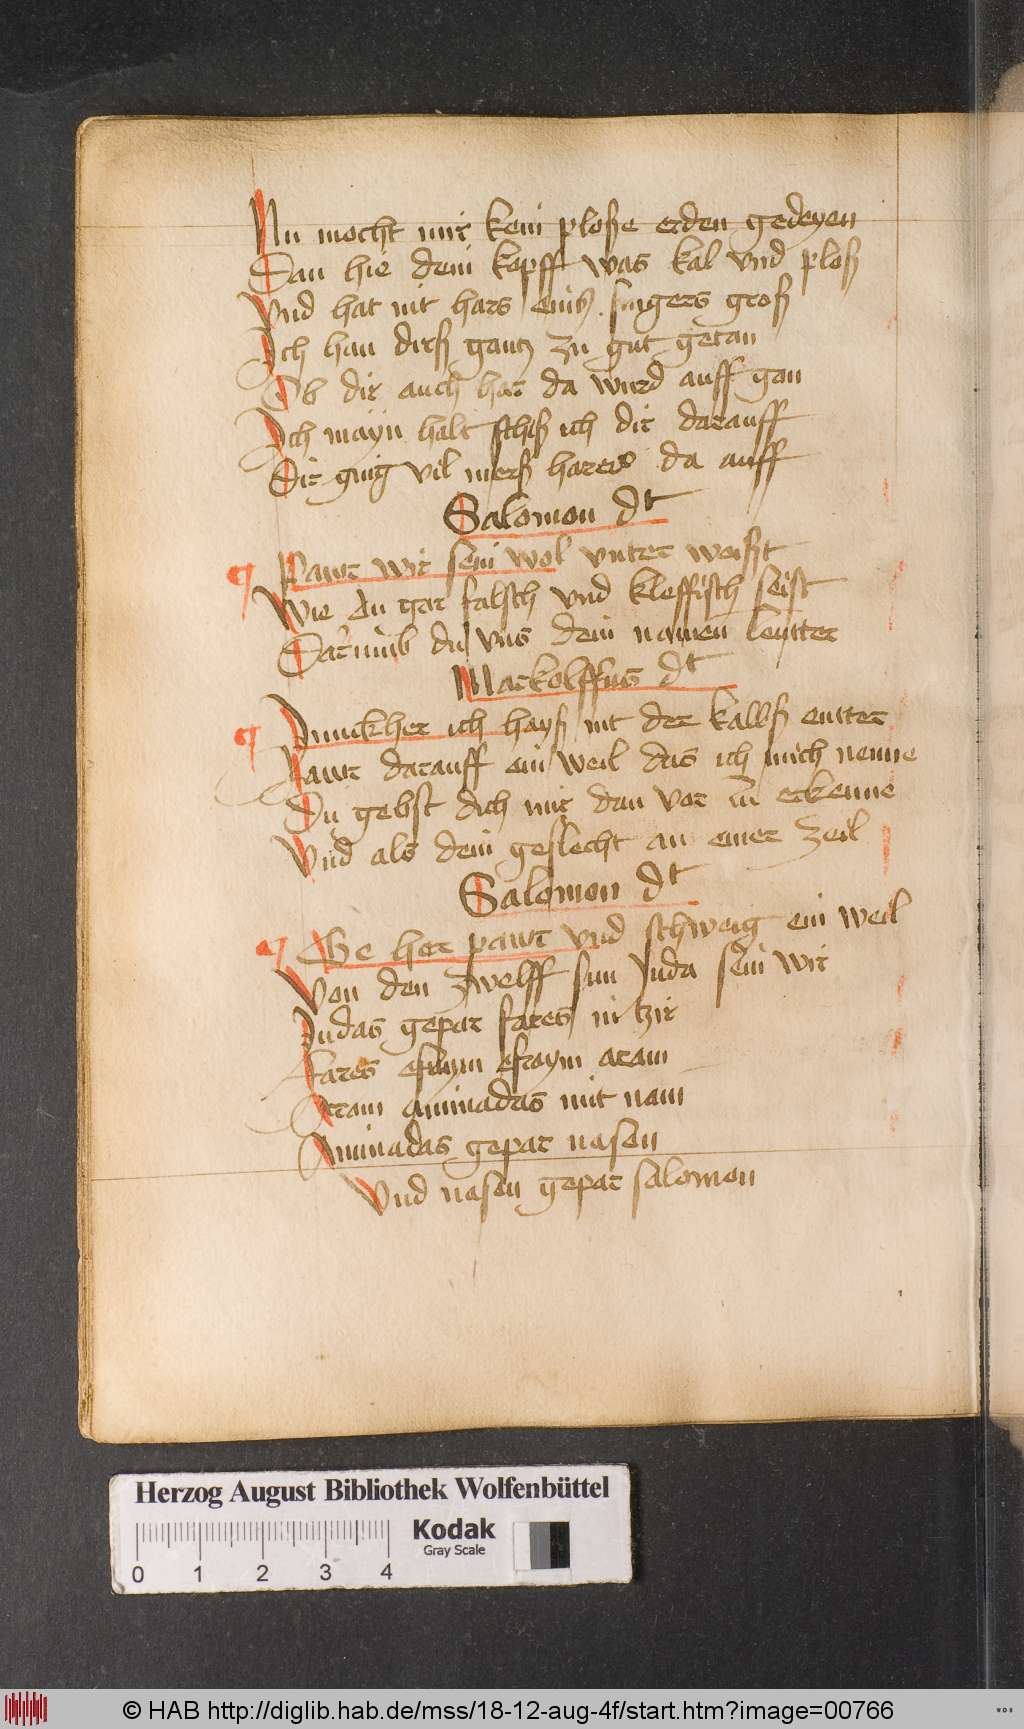 Nu mocht mir kein plosse erden gedeyen
Dan hie dein kopff was kal vnd ploß
Vnd hat nit hars eins fingers groß
Ich han dirß gantz zu gut getan
Ob dir auch har da wurd auff gan
Ich mayn halt scheiß ich dir darauff
Dir ging vil merß harers da auff
Salomon dt
Pawr wir sein wol vnter weißt
Wie du gar falsch vnd kleffisch seist
Darumb du vns dein namen leutter
Markolffus dt
Junckher ich hayß nit der kalbß eutter
Pawr darauff ein weil das ich mich nenne
Du gebst dich mir dan vor zu erkenne
Vnd als dein geslecht an einer zeil
Salomon dt
Ge her pawr vnd schweig ein weil
Von den zwelff sun Juda sein wir
Judas gepar fares in tzir
Fares esroym esroym aram
Aram aminadas mit nam
Aminadas gepar nason
Vnd nason gepar salomon
Herzog August Bibliothek Wolfenbüttel
Kodak
Gray Scale
0 1 2 3 4
© HAB http://diglib.hab.de/mss/18-12-aug-4f/start.htm?image=00766